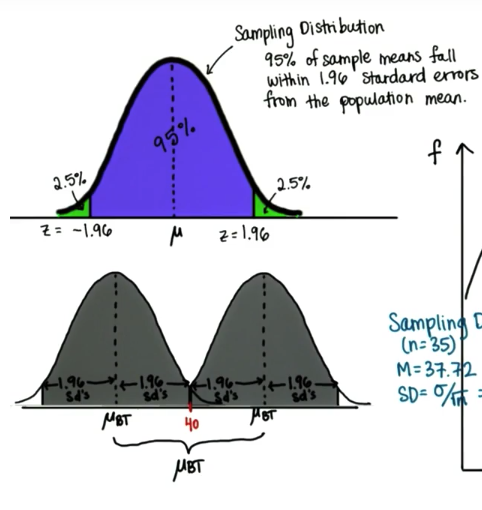 Sampling Distribution
95% of sample means fall
within 1.96 standard errors
from the population mean.
95%
2.5%
2.5%
z = -1.96
μ
z=1.96
f
1.96 sd's
1.96 sd's
1.96 sd's
1.96 sd's
μBT
40
μBT
μBT
Sampling D
(n=35)
M=37.72
SD= σ/√n =